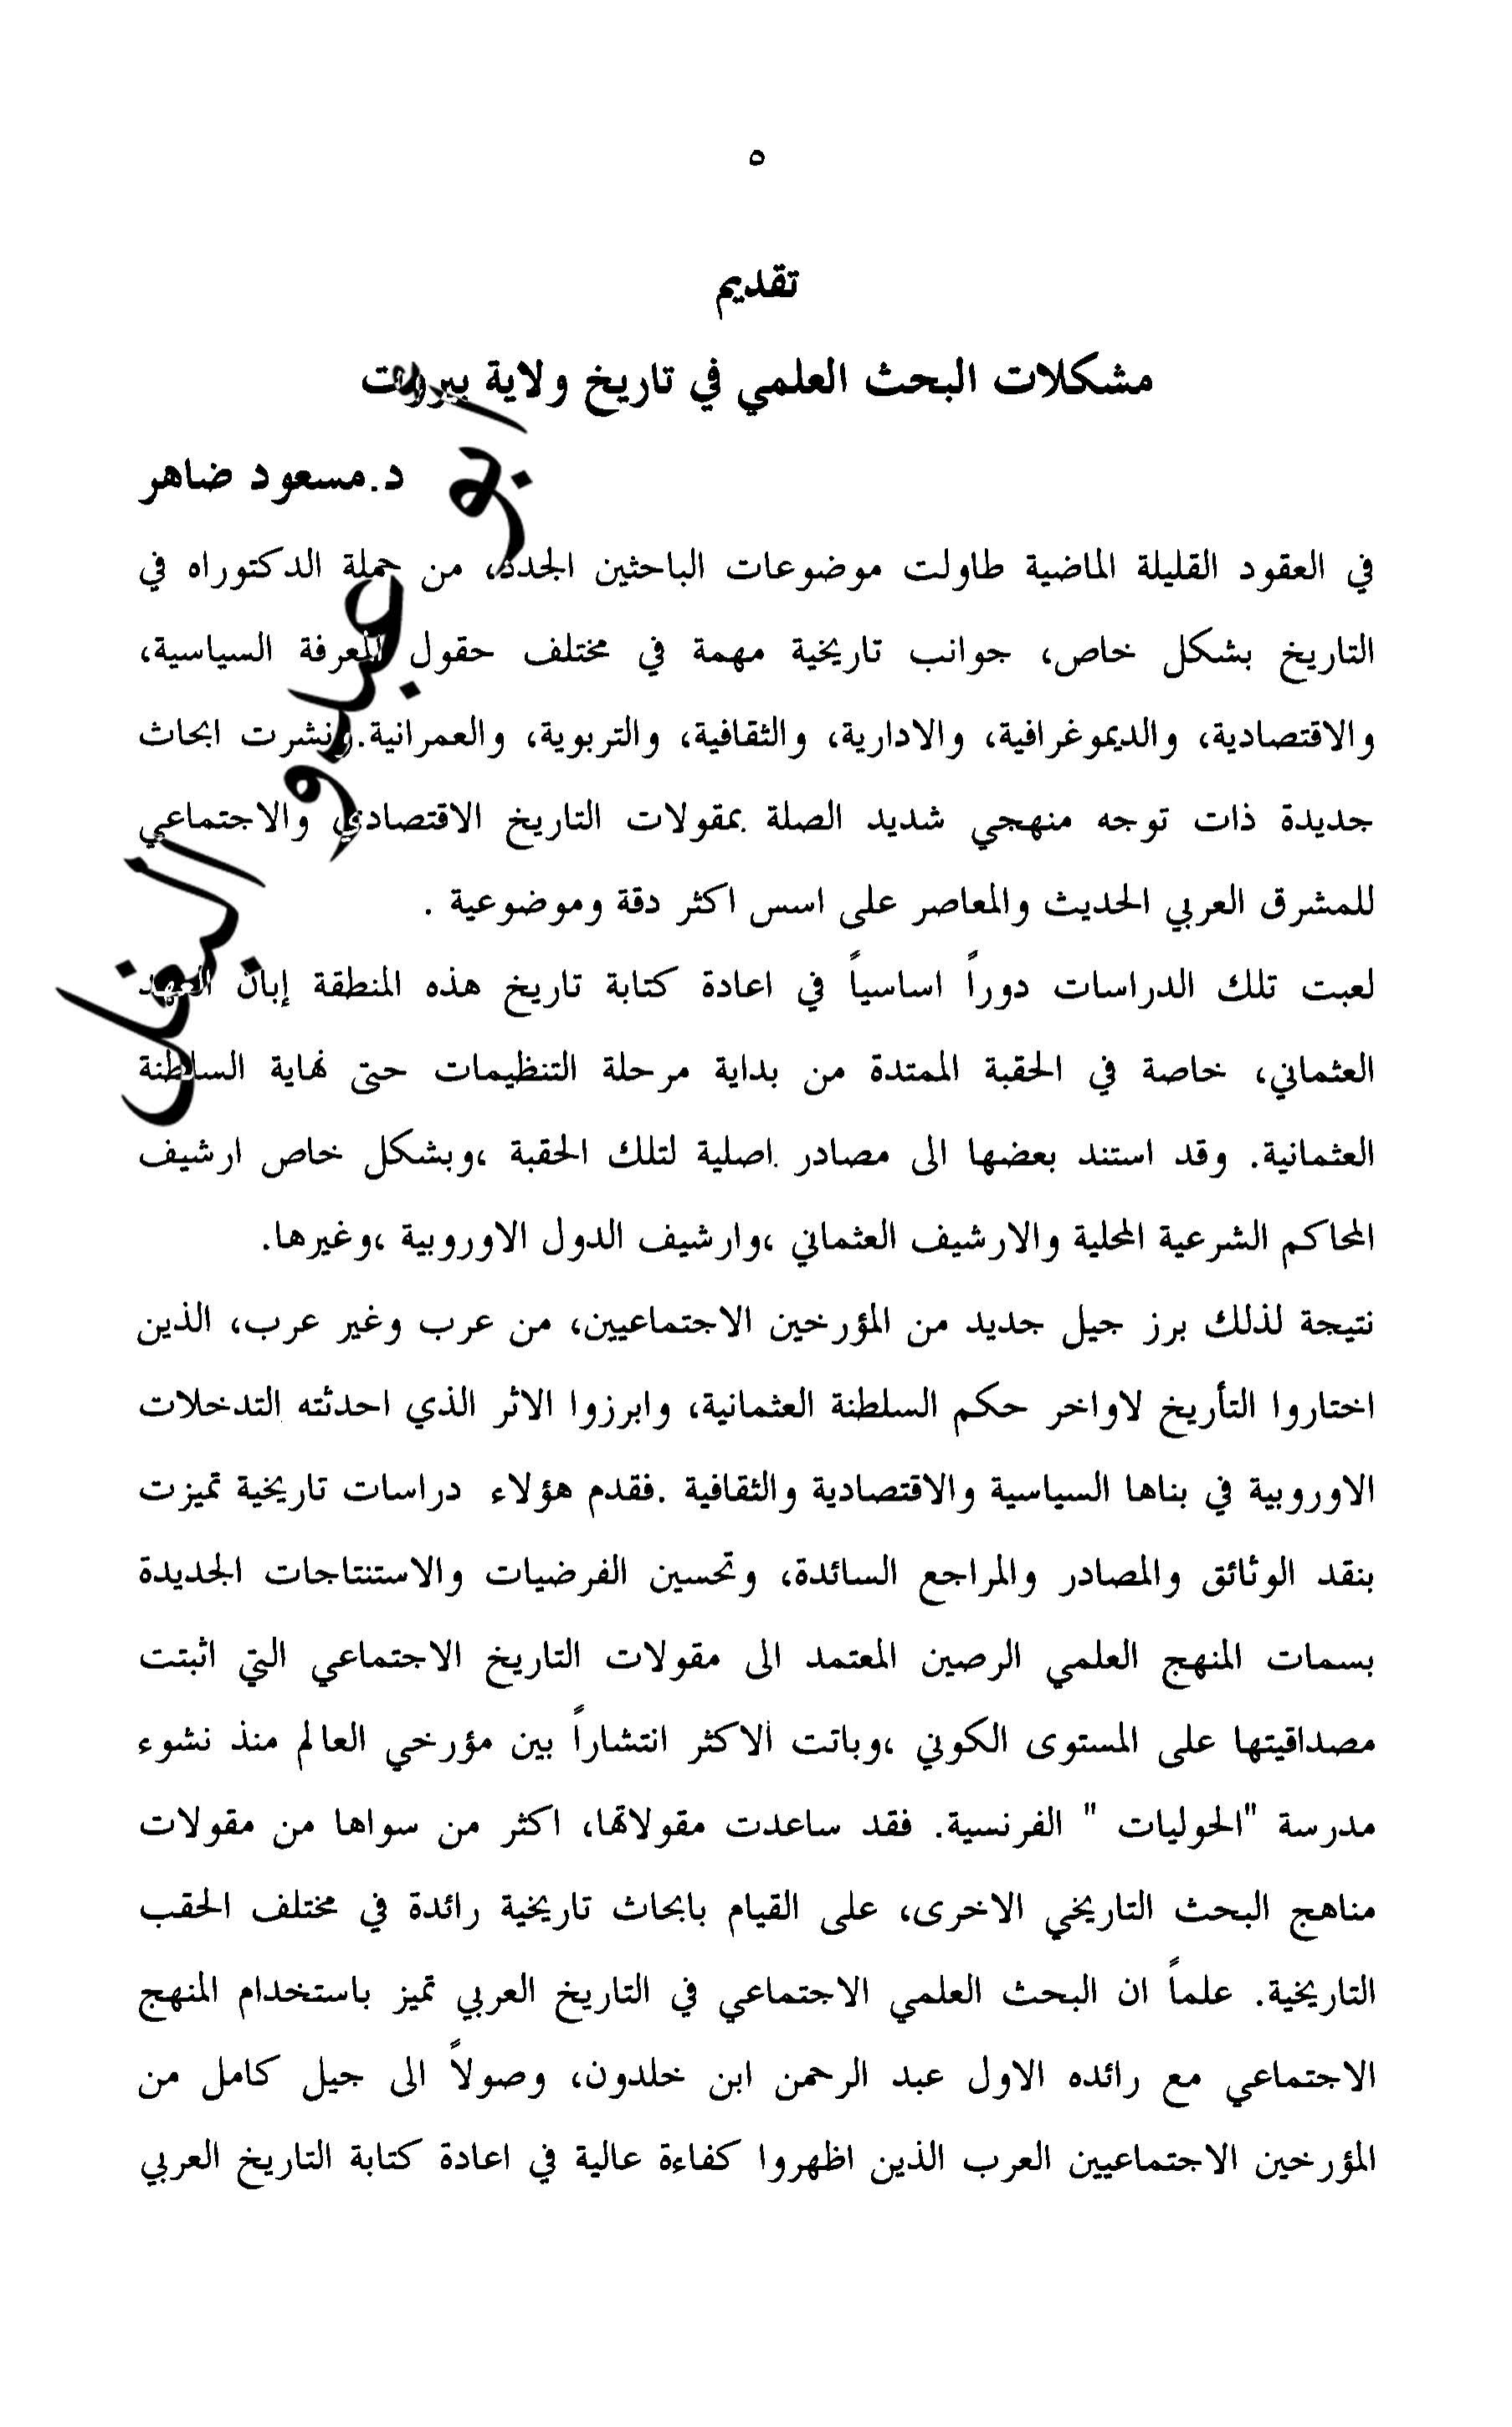 ٥
تقديم
مشكلات البحث العلمي في تاريخ ولاية بيروت
د.مسعود ضاهر
في العقود القليلة الماضية طاولت موضوعات الباحثين الجدد، من حملة الدكتوراه في
التاريخ بشكل خاص، جوانب تاريخية مهمة في مختلف حقول المعرفة السياسية،
والاقتصادية، والديموغرافية، والادارية، والثقافية، والتربوية، والعمرانية.ونشرت ابحاث
جديدة ذات توجه منهجي شديد الصلة بمقولات التاريخ الاقتصادي والاجتماعي
للمشرق العربي الحديث والمعاصر على اسس اكثر دقة وموضوعية .
لعبت تلك الدراسات دوراً اساسياً في اعادة كتابة تاريخ هذه المنطقة إبان العهد
العثماني، خاصة في الحقبة الممتدة من بداية مرحلة التنظيمات حتى نهاية السلطنة
العثمانية. وقد استند بعضها الى مصادر اصلية لتلك الحقبة ،وبشكل خاص ارشيف
المحاكم الشرعية المحلية والارشيف العثماني ،وارشيف الدول الاوروبية ،وغيرها.
نتيجة لذلك برز جيل جديد من المؤرخين الاجتماعيين، من عرب وغير عرب، الذين
اختاروا التأريخ لاواخر حكم السلطنة العثمانية، وابرزوا الاثر الذي احدثته التدخلات
الاوروبية في بناها السياسية والاقتصادية والثقافية .فقدم هؤلاء دراسات تاريخية تميزت
بنقد الوثائق والمصادر والمراجع السائدة، وتحسين الفرضيات والاستنتاجات الجديدة
بسمات المنهج العلمي الرصين المعتمد الى مقولات التاريخ الاجتماعي التي اثبتت
مصداقيتها على المستوى الكوني ،وباتت الاكثر انتشاراً بين مؤرخي العالم منذ نشوء
مدرسة "الحوليات " الفرنسية. فقد ساعدت مقولاتها، اكثر من سواها من مقولات
مناهج البحث التاريخي الاخرى، على القيام بابحاث تاريخية رائدة في مختلف الحقب
التاريخية. علماً ان البحث العلمي الاجتماعي في التاريخ العربي تميز باستخدام المنهج
الاجتماعي مع رائده الاول عبد الرحمن ابن خلدون، وصولاً الى جيل كامل من
المؤرخين الاجتماعيين العرب الذين اظهروا كفاءة عالية في اعادة كتابة التاريخ العربي
أبو عبدو البغل